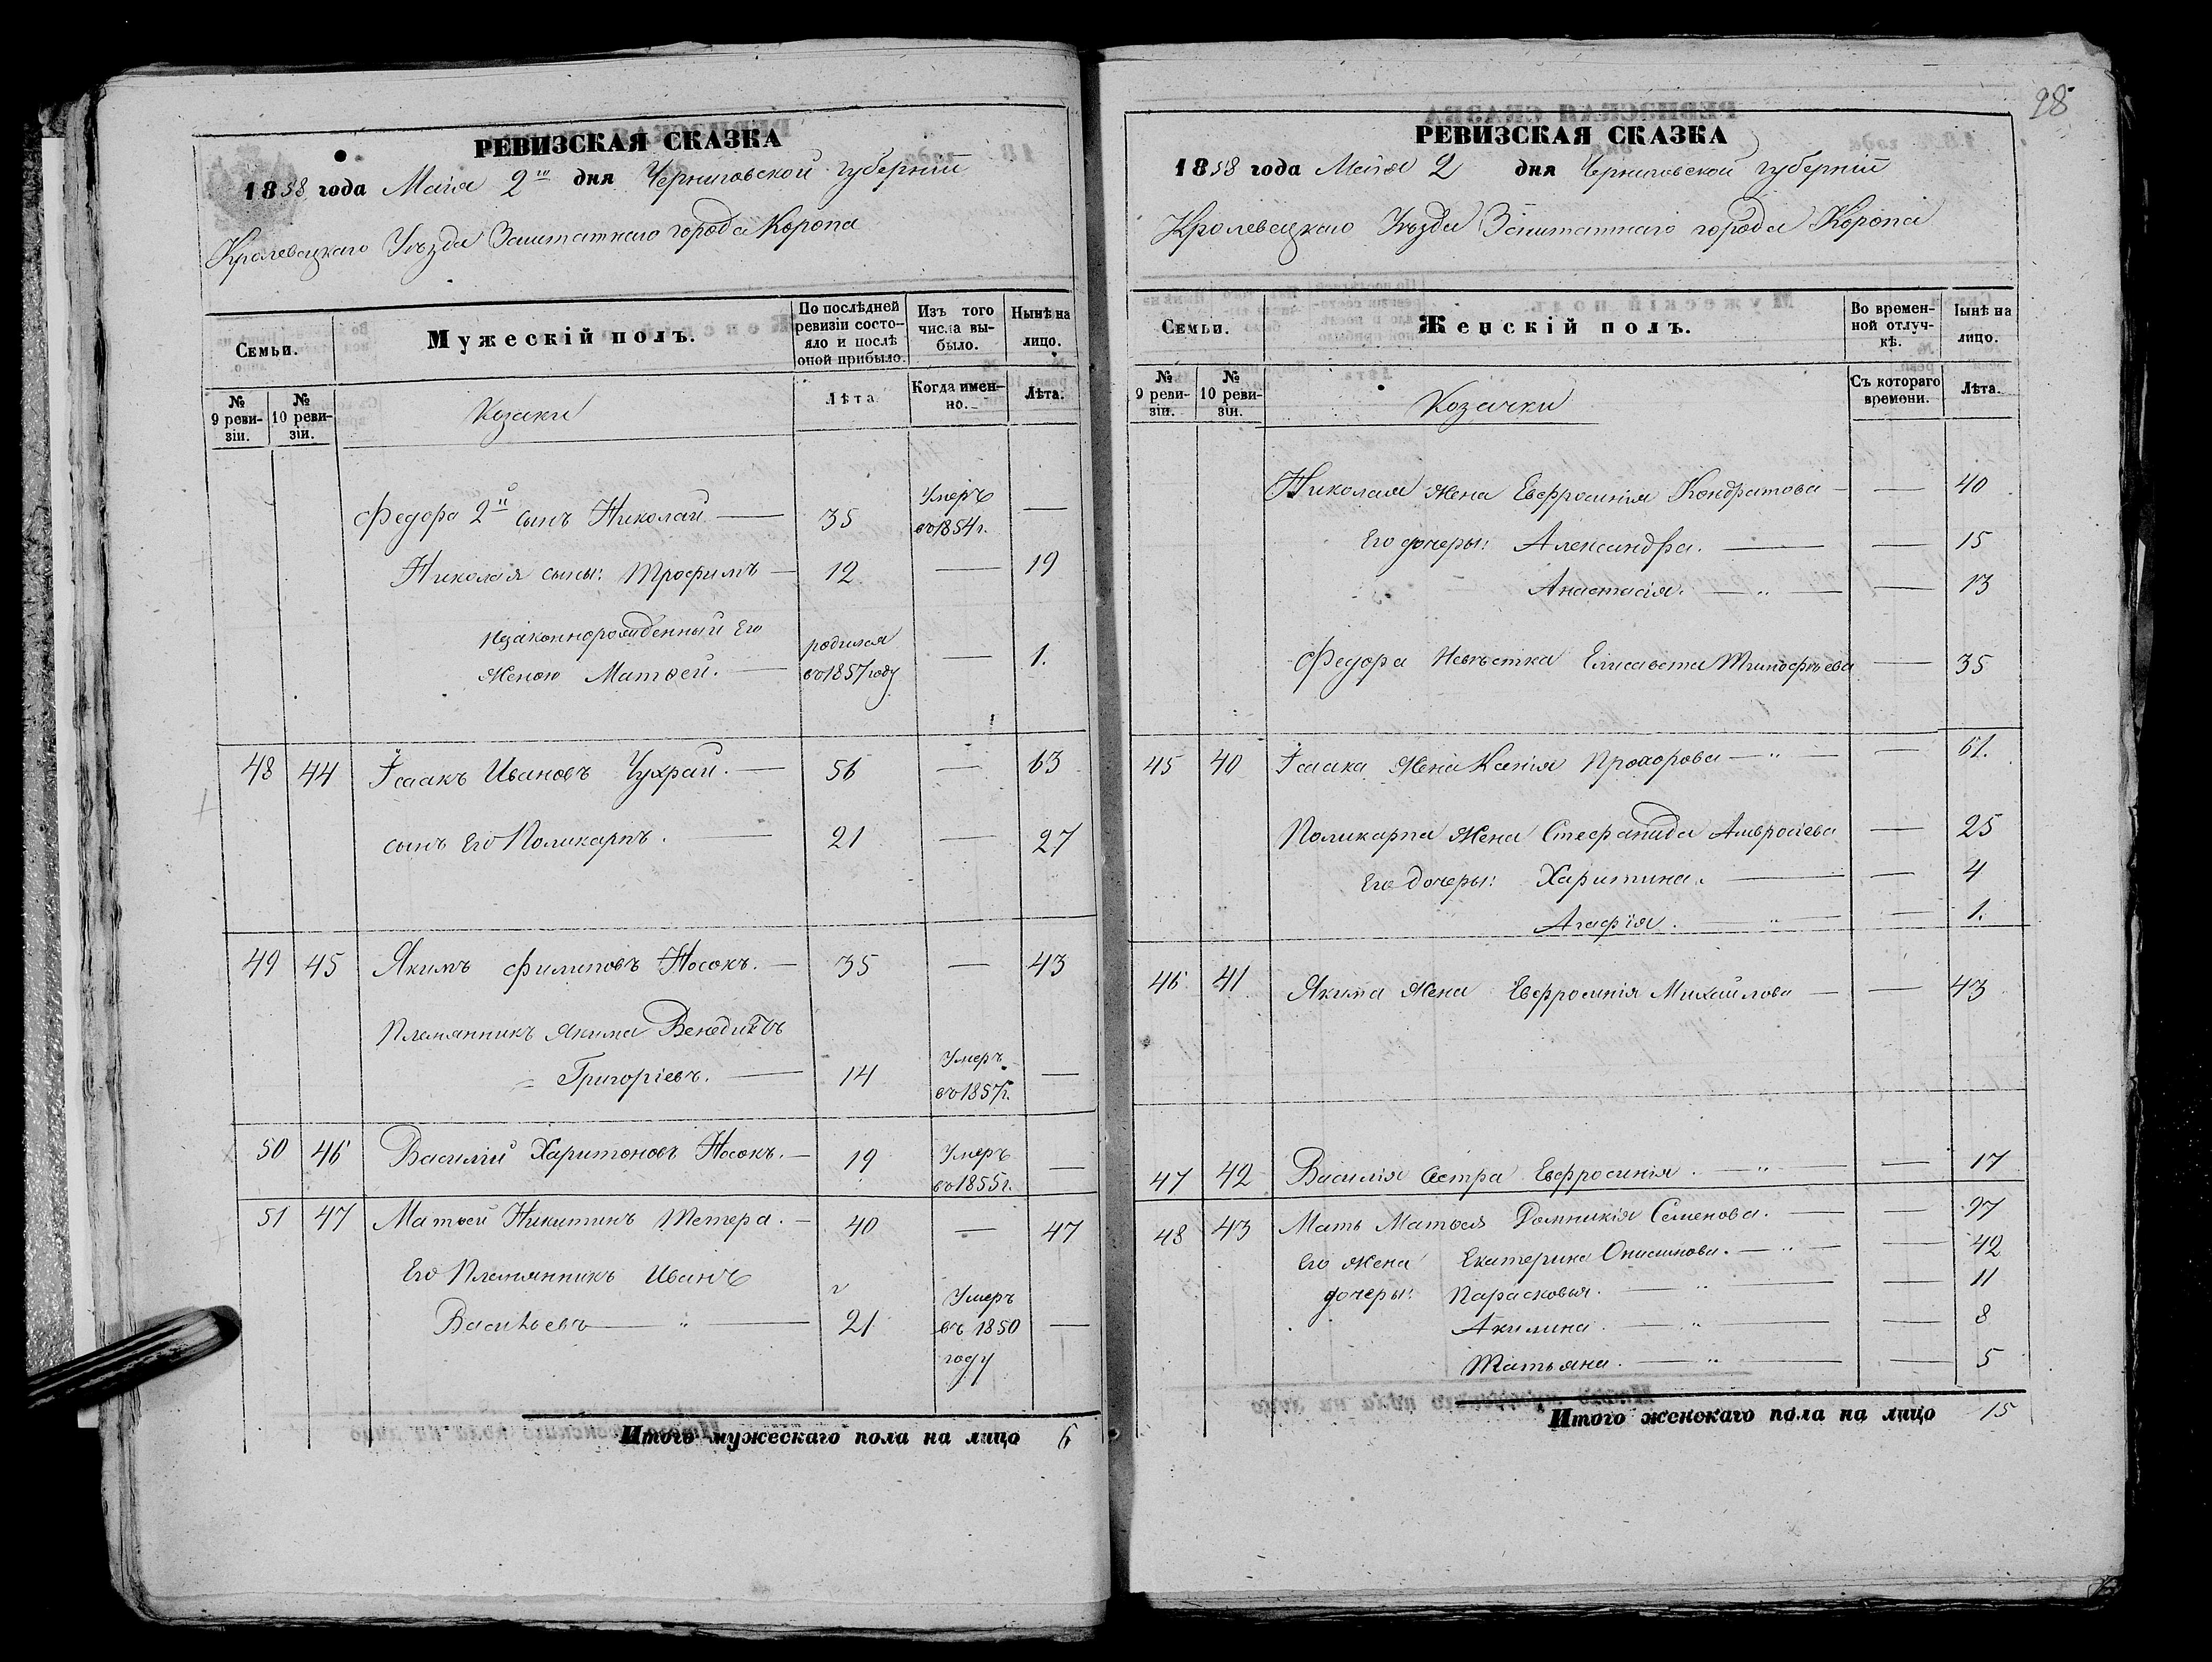 РЕВИЗСКАЯ СКАЗКА
1858 года Маія 2го дня Черниговской губерніи
Кролевецкаго Уѣзда Заштатнаго города Коропа
Семьи.
Мужескій полъ.
По послѣдней ревизіи состояло и послѣ оной прибыло.
Изъ того числа выбыло.
Нынѣ на лицо.
№ 9 ревизіи.
№ 10 ревизіи.
Козаки
Лѣта
Когда именно.
Лѣта.
Федора 2й сынъ Николай — 35 Умеръ въ 1854 г. —
Николая сыны: Трофимъ — 12 — 19
Незаконнорожденный Его
Женою Матвей. — родился въ 1857 году — 1.
48 44 Ісаакъ Ивановъ Чухрай. — 56 — 63
сынъ Его Поликарпъ. — 21 — 27
49 45 Якимъ Филиповъ Носокъ. — 35 — 43
Племянникъ Якима Венедиктъ
Григоріевъ. — 14 Умеръ въ 1857 г. —
50 46 Василій Харитоновъ Носокъ. — 19 Умеръ въ 1855 г. —
51 47 Матвей Никитинъ Тетера. — 40 — 47
Его Племянникъ Иванъ
Васильевъ — " — 21 Умеръ въ 1850 году —
Итого мужескаго пола на лицо 6
28
РЕВИЗСКАЯ СКАЗКА
1858 года Маія 2 дня Черниговской губерніи
Кролевецкаго Уѣзда Заштатнаго города Коропа
Семьи.
Женскій полъ.
Во временной отлучкѣ.
Нынѣ на лицо.
№ 9 ревизіи.
№ 10 ревизіи.
Козачки
Съ котораго времени.
Лѣта.
Николая жена Евфросинія Кондратова — — 40
Его дочеры: Александра. — — 15
Анастасія. — " — — 13
Федора Невѣстка Елисавета Тимофѣева — 35
45 40 Ісаака Жена Ксенія Прохорова — " — — 61.
Поликарпа Жена Стефанида Амвросіева — 25
Его дочеры: Харитина. — — 4
Агафія. — " — — 1.
46 41 Якима Жена Евфросинія Михайлова — — 43
47 42 Василія Сестра Евфросинія. — " — — 17
48 43 Мать Матвея Домникія Семенова. — — 77
Его Жена Екатерина Онисимова. — " — — 42
дочеры: Парасковья. — " — — 11
Акилина. — " — — 8
Татьяна. — " — — 5
Итого женскаго пола на лицо 15